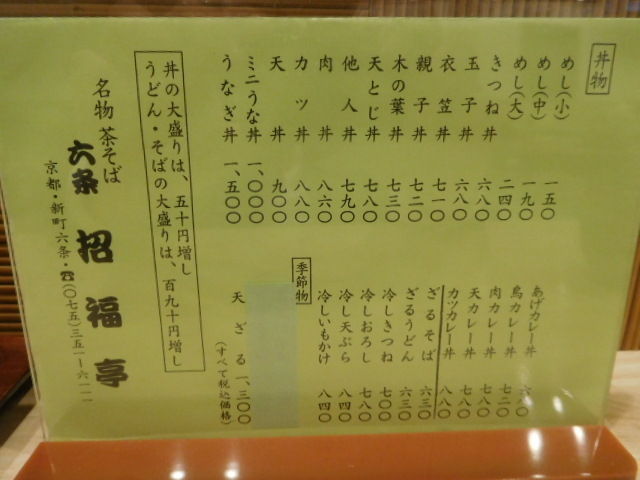 丼物
めし(小) 一五〇
めし(中) 一九〇
めし(大) 二四〇
きつね丼 六八〇
玉子丼 六八〇
衣笠丼 七一〇
親子丼 七二〇
木の葉丼 七三〇
天とじ丼 七八〇
他人丼 七九〇
肉丼 八六〇
カツ丼 八八〇
天丼 九〇〇
ミニうな丼 一、〇〇〇
うなぎ丼 一、五〇〇
あげカレー丼
鳥カレー丼 七二〇
肉カレー丼 七八〇
天カレー丼 七八〇
カツカレー丼 八八〇
ざるそば 六三〇
ざるうどん 六三〇
冷しきつね 七〇〇
冷しおろし 七八〇
冷し天ぷら 八四〇
冷しいもかけ 八四〇
季節物
天ざる 一、三〇〇
(すべて税込価格)
丼の大盛りは、五十円増し
うどん・そばの大盛りは、百九十円増し
名物 茶そば
六条 招福亭
京都・新町六条・☎(〇七五)三五一ー六一一一